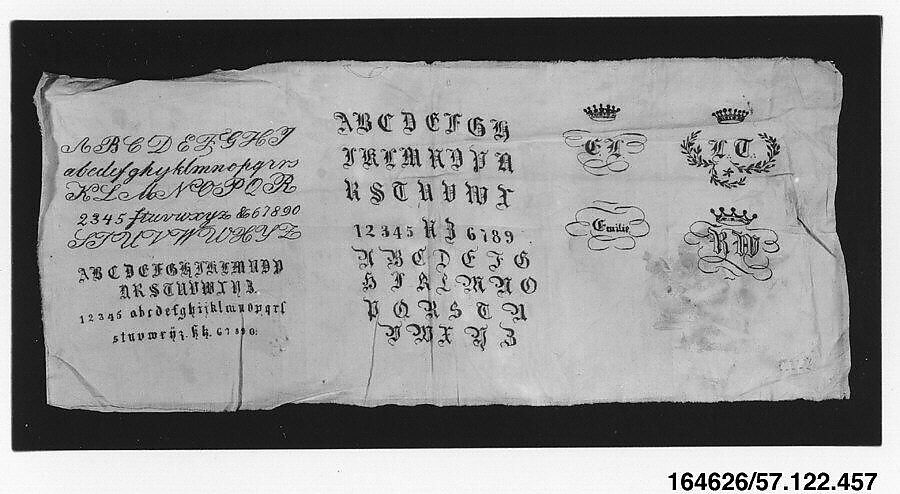 A B C D E F G H I
a b c d e f g h y k l m n o p q r r s
K L M N O P Q R
2 3 4 5 f t u v w x y z & 6 7 8 9 0
S T U V W U X Y Z
A B C D E F G H I K L M N O P
Q R S T U V W X Y Z.
1 2 3 4 5 a b c d e f g h i j k l m n o p q r s
s t u v w x ÿ z. 6 7 8 9 0.
A B C D E F G H
I K L M N O P Q
R S T U V W X
1 2 3 4 5 Y Z 6 7 8 9
A B C D E F G
H I K L M N O
P Q R S T U
V W X Y Z
E L
Emilie
L. T.
R W
164626/57.122.457